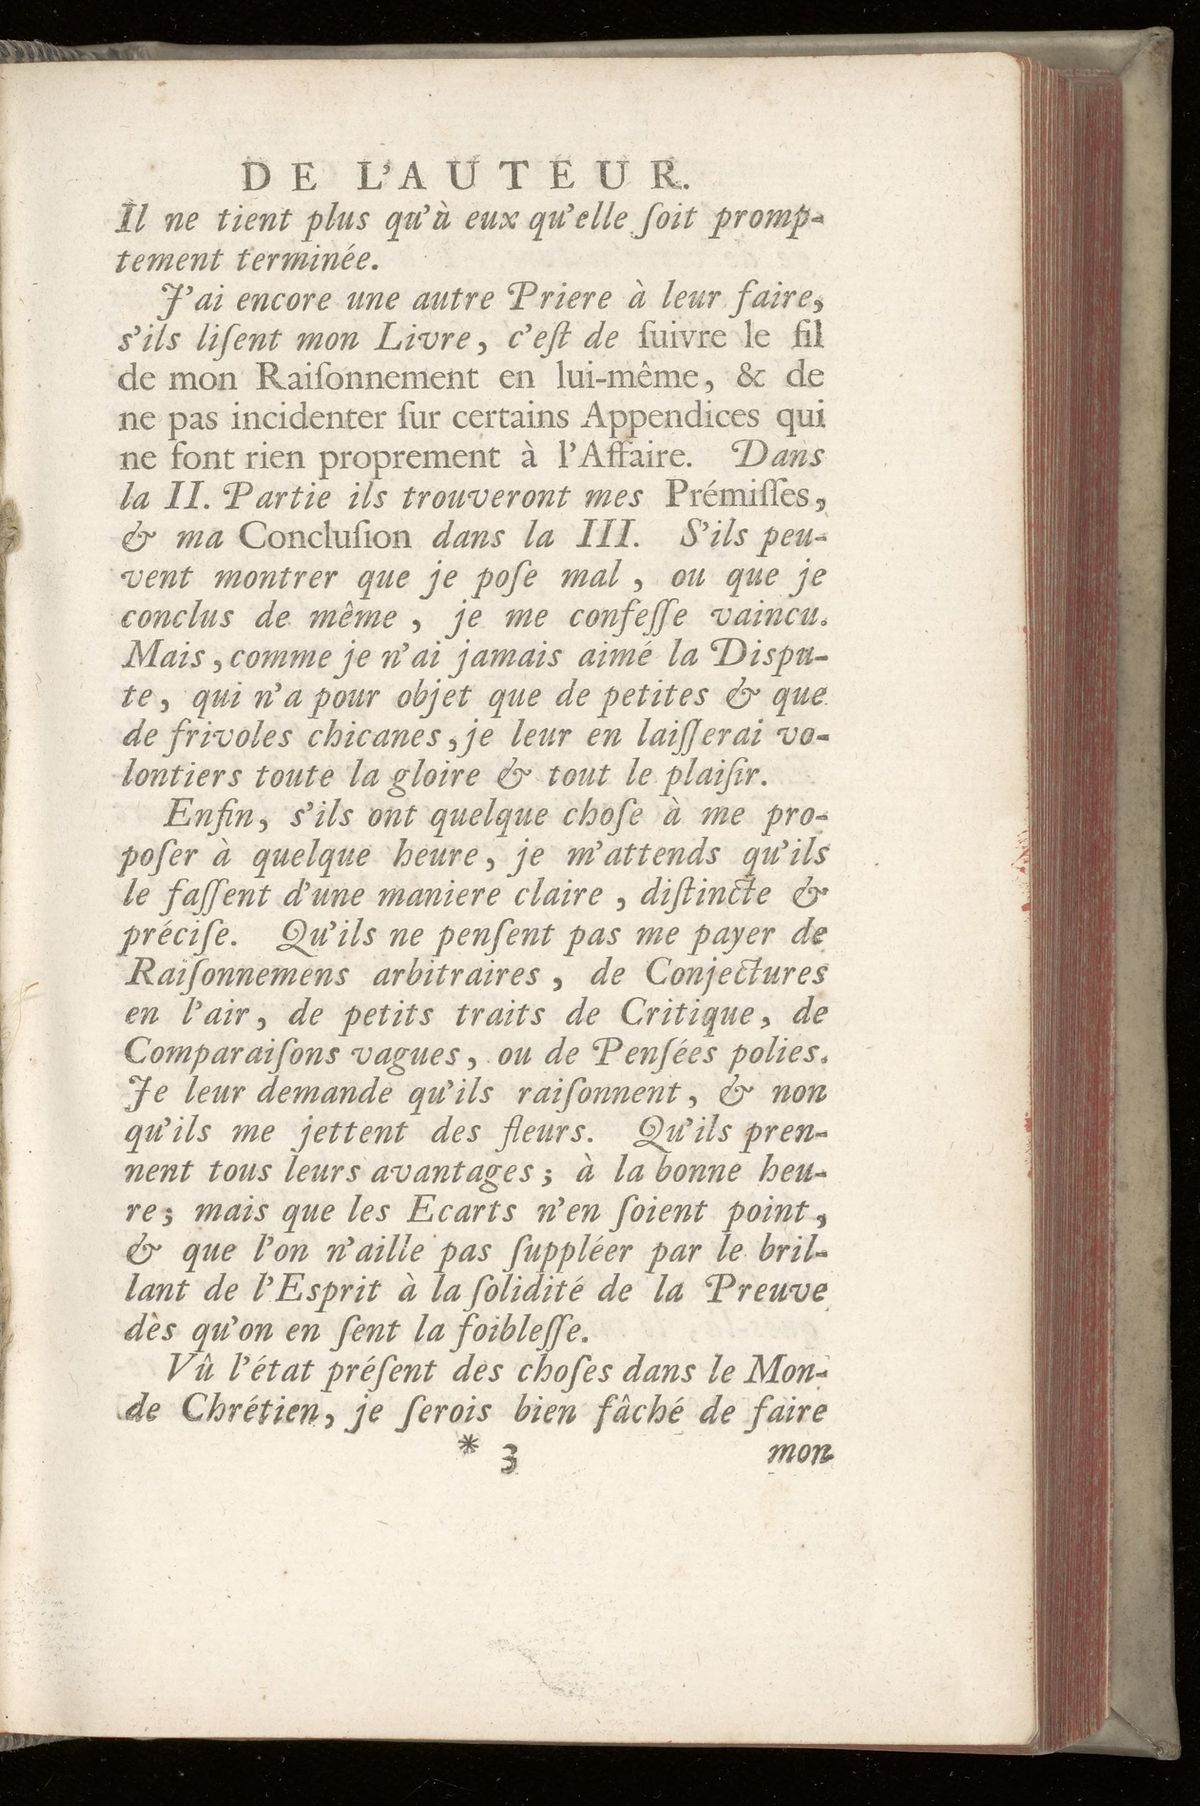 DE L'AUTEUR.
Il ne tient plus qu'à eux qu'elle ſoit promp-
tement terminée.
J'ai encore une autre Priere à leur faire,
s'ils liſent mon Livre, c'eſt de ſuivre le fil
de mon Raiſonnement en lui-même, & de
ne pas incidenter ſur certains Appendices qui
ne font rien proprement à l'Affaire. Dans
la II. Partie ils trouveront mes Prémiſſes,
& ma Concluſion dans la III. S'ils peu-
vent montrer que je poſe mal, ou que je
conclus de même, je me confeſſe vaincu.
Mais, comme je n'ai jamais aimé la Diſpu-
te, qui n'a pour objet que de petites & que
de frivoles chicanes, je leur en laiſſerai vo-
lontiers toute la gloire & tout le plaiſir.
Enfin, s'ils ont quelque choſe à me pro-
poſer à quelque heure, je m'attends qu'ils
le faſſent d'une maniere claire, diſtincte &
préciſe. Qu'ils ne penſent pas me payer de
Raiſonnemens arbitraires, de Conjectures
en l'air, de petits traits de Critique, de
Comparaiſons vagues, ou de Penſées polies.
Je leur demande qu'ils raiſonnent, & non
qu'ils me jettent des fleurs. Qu'ils pren-
nent tous leurs avantages; à la bonne heu-
re; mais que les Ecarts n'en ſoient point,
& que l'on n'aille pas ſuppléer par le bril-
lant de l'Esprit à la ſolidité de la Preuve
dès qu'on en ſent la foibleſſe.
Vû l'état préſent des choſes dans le Mon-
de Chrétien, je ſerois bien fâché de faire
* 3 mon